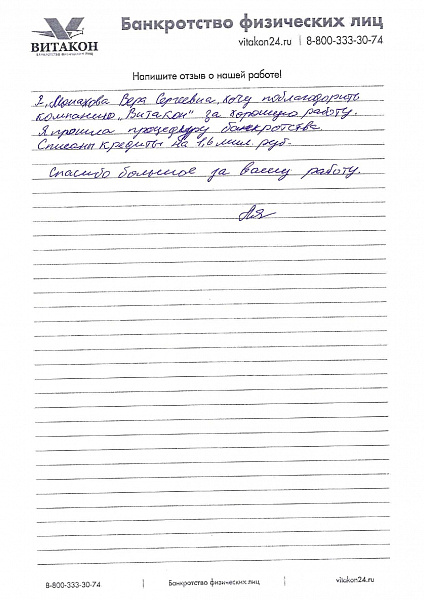 ВИТАКОН
БАНКРОТСТВО ФИЗИЧЕСКИХ ЛИЦ
Банкротство физических лиц
vitakon24.ru | 8-800-333-30-74
Напишите отзыв о нашей работе!
Я, Монахова Вера Сергеевна, хочу поблагодорить
компанию „Витакон" за хорошую работу.
Я прошла процедуру банкротства.
Списаны кредиты на 1,6 мил. руб.
Спасибо большое за вашу работу.
8-800-333-30-74 | Банкротство физических лиц | vitakon24.ru